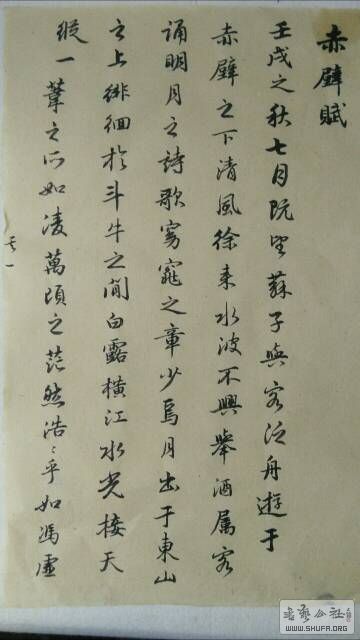 赤壁賦
壬戌之秋七月既望蘇子與客泛舟遊于
赤壁之下清風徐来水波不興舉酒属客
誦明月之詩歌窈窕之章少焉月出于東山
之上徘徊於斗牛之間白露橫江水光接天
縱一葦之所如凌萬頃之茫然浩〻乎如馮虛
其一
书艺公社
WWW.SHUFA.ORG